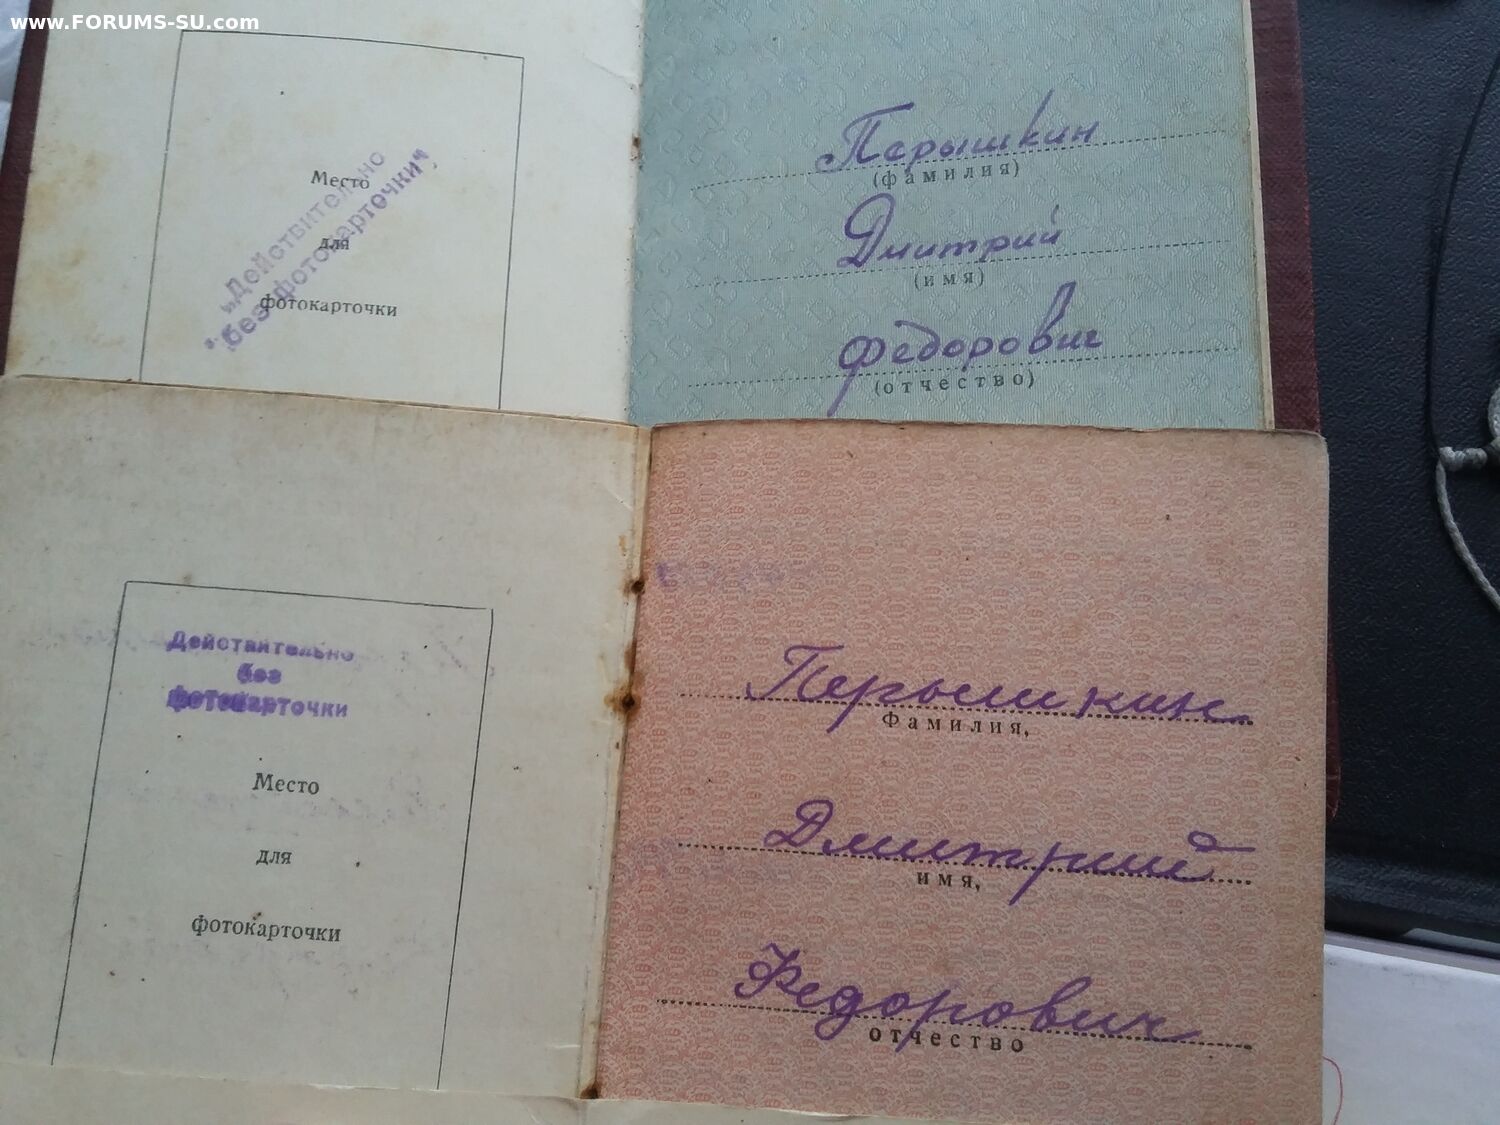 www.FORUMS-SU.com
Место
для
фотокарточки
„Действительно
без фотокарточки"
Перышкин
(фамилия)
Дмитрий
(имя)
Федорович
(отчество)
Действительно
без
фотокарточки
Место
для
фотокарточки
Перышкин
Фамилия,
Дмитрий
имя,
Федорович
отчество